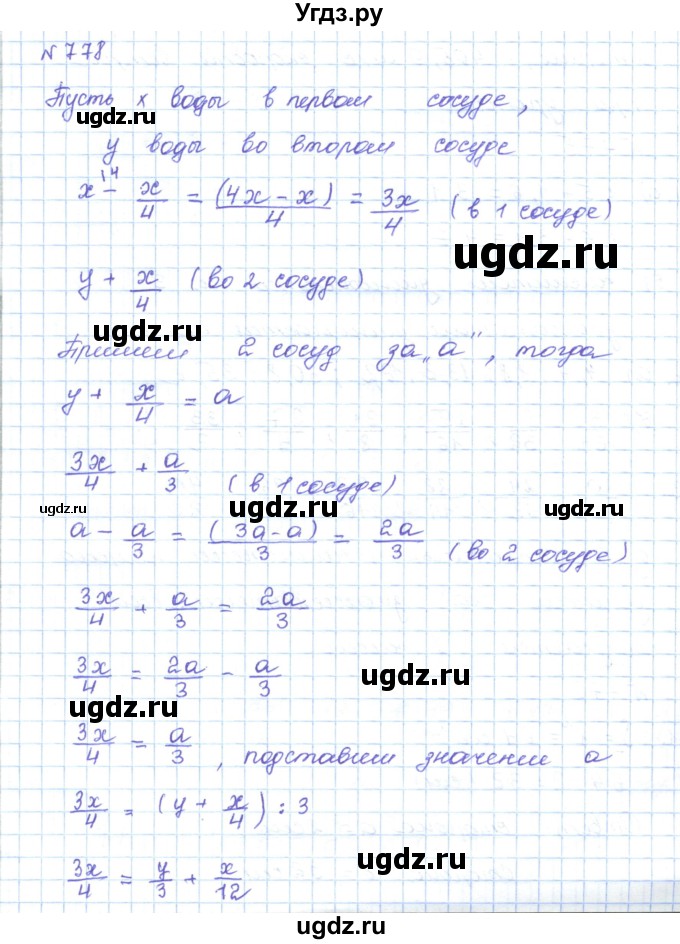 Угдз.ру
№ 778
Пусть x воды в первом сосуде,
ugdz.ru
y воды во втором сосуде
x\4 − x/4 = (4x − x)/4 = 3x/4 (в 1 сосуде)
ugdz.ru
ugdz.ru
y + x/4 (во 2 сосуде)
ugdz.ru
Примем 2 сосуд за „а", тогда
ugdz.ru
y + x/4 = a
ugdz.ru
3x/4 + a/3 (в 1 сосуде)
ugdz.ru
ugdz.ru
a − a/3 = (3a-a)/3 = 2a/3 (во 2 сосуде)
ugdz.ru
3x/4 + a/3 = 2a/3
3x/4 = 2a/3 − a/3
ugdz.ru
ugdz.ru
3x/4 = a/3, подставим значение a
3x/4 = (y + x/4) : 3
ugdz.ru
3x/4 = y/3 + x/12
ugdz.ru
ugdz.ru